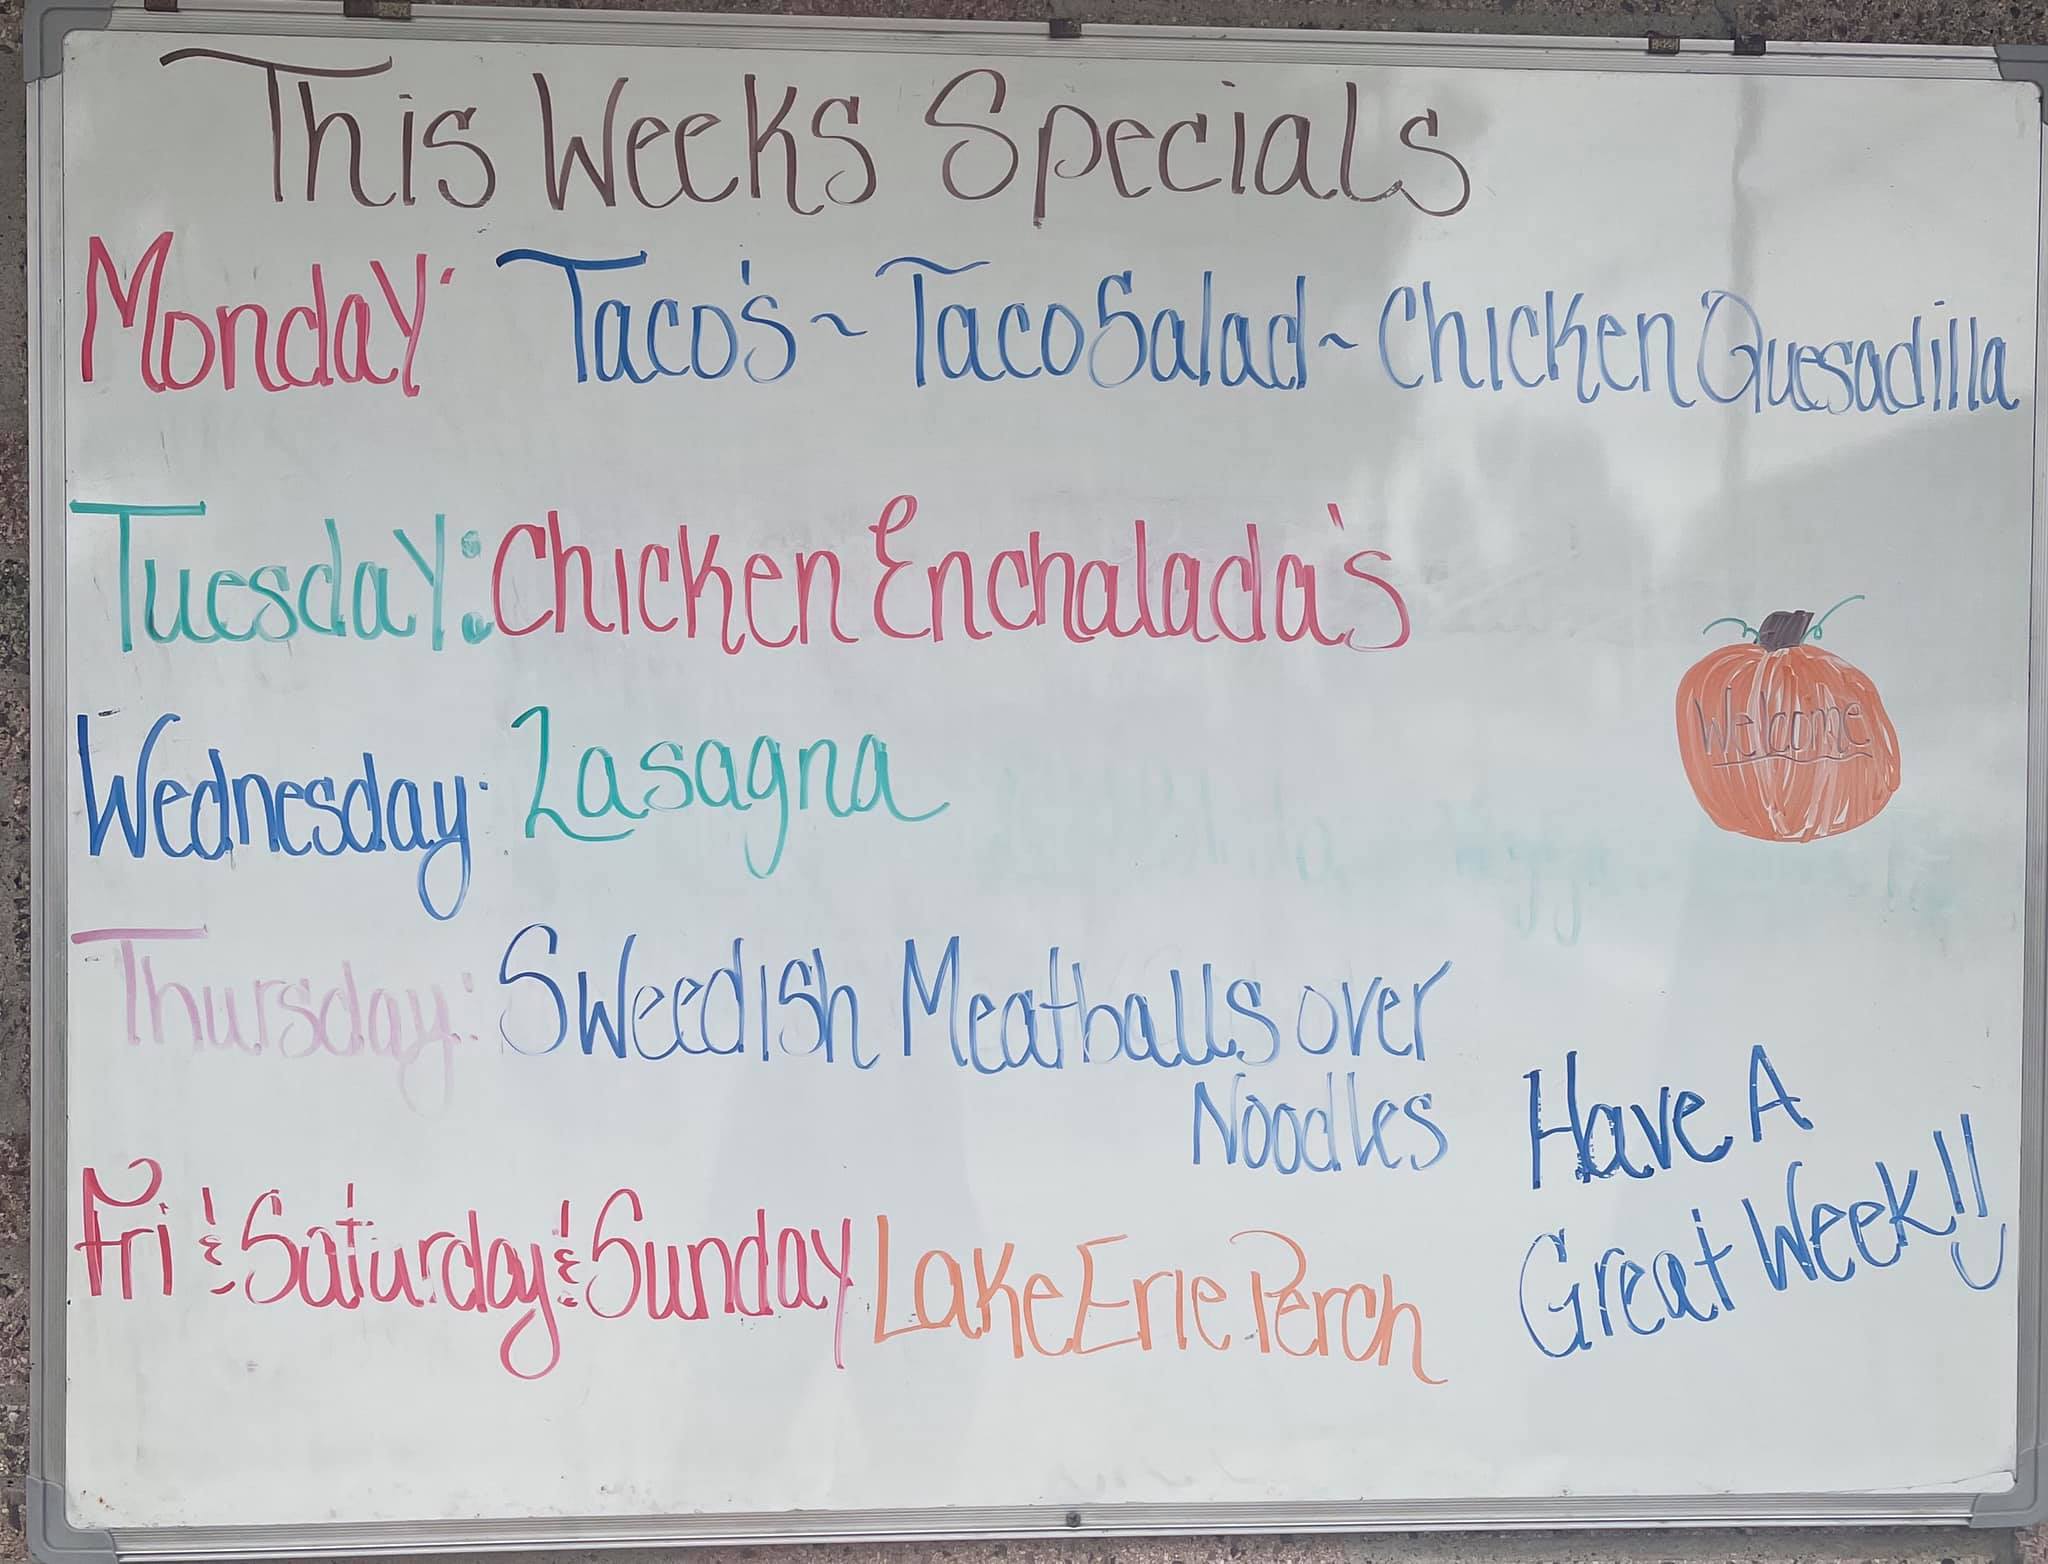 This Weeks Specials
Monday: Taco's ~ Taco Salad ~ Chicken Quesadilla
Tuesday: Chicken Enchalada's
Welcome
Wednesday: Lasagna
Thursday: Swedish Meatballs over
Noodles
Fri & Saturday & Sunday Lake Erie Perch
Have A
Great Week!!